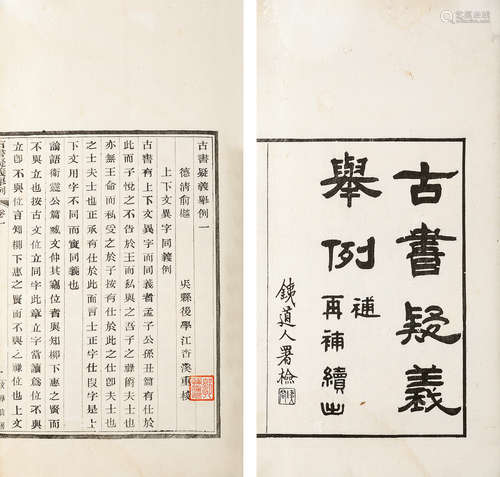 古書疑義
舉例 補
再補續出
鐵道人署檢
古書疑義舉例一
德清俞樾
吳縣後學江杏溪重校
上下文異字同義例
古書有上下文異字而同義者孟子公孫丑篇有仕於
此而子悅之不告於王而私與之吾子之祿爵夫士也
亦無王命而私受之於子按有仕於此之仕卽夫士也
之士夫士也正承有仕於此而言士正字仕叚字是上
下文用字不同而實同義也
論語衛靈公篇臧文仲其竊位者與知柳下惠之賢而
不與立也按古文位立同字此章立字當讀爲位不與
立卽不與位言知柳下惠之賢而不與之祿位也上文
古書疑義舉例 卷一